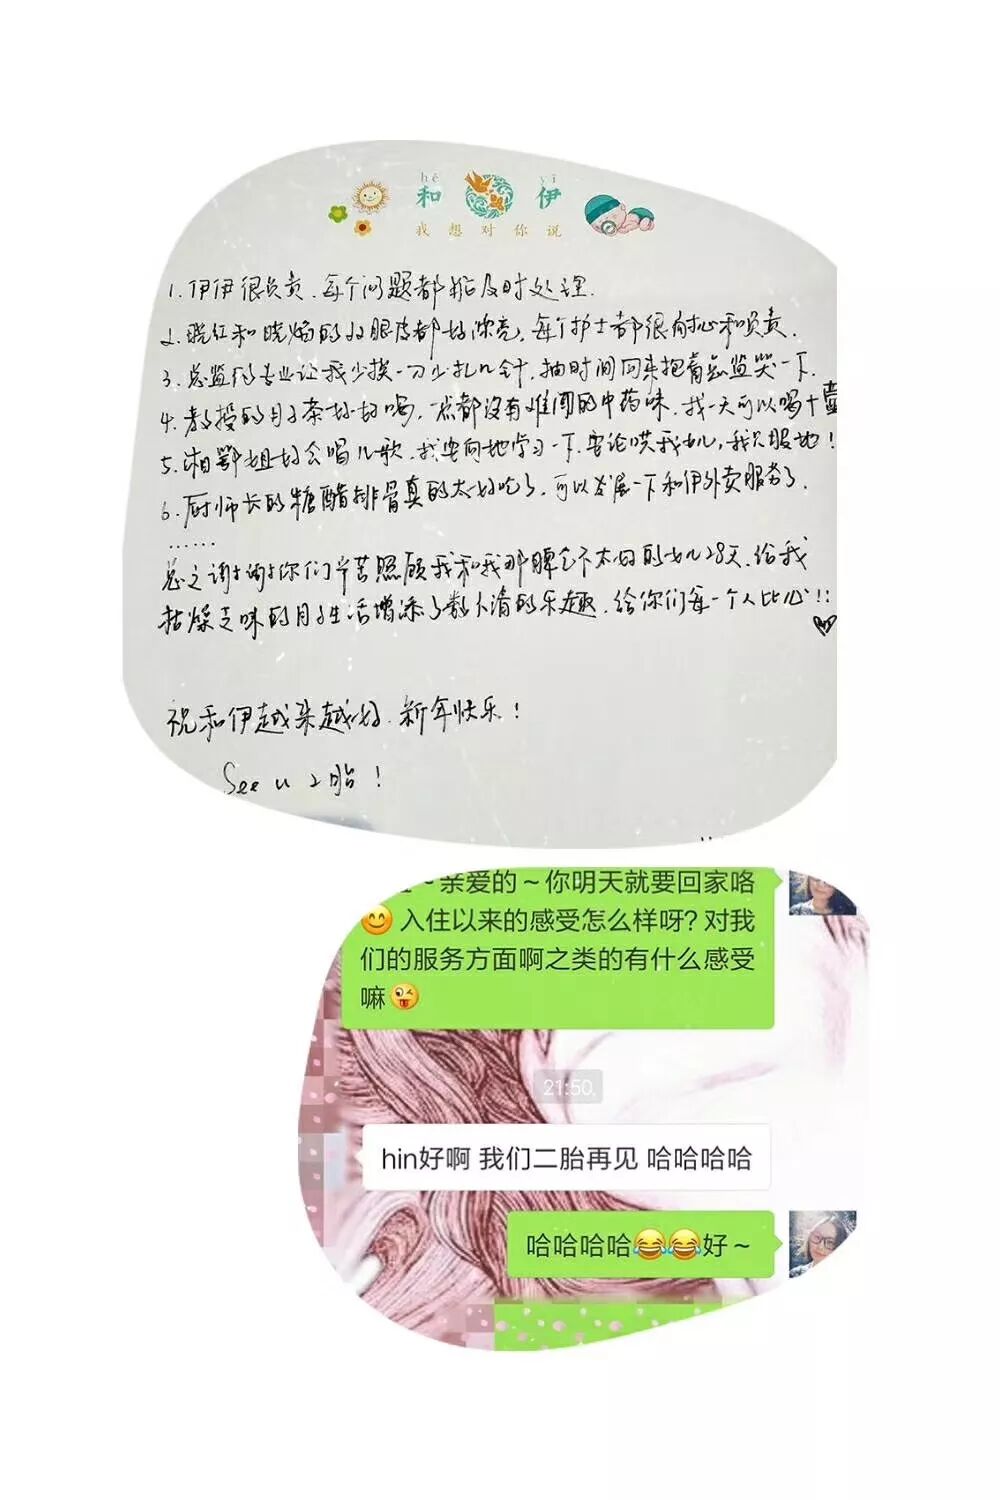 hé yī
和 伊
我想对你说
1. 伊伊很负责、每个问题都能及时处理.
2. 晓红和晓炀的双眼皮都好漂亮, 每个护士都很耐心和负责.
3. 总监的专业让我少挨一刀少扎几针, 抽时间回来把育总监哭一下.
4. 教授的月子茶好好喝, 一点都没有难闻的中药味, 我一天可以喝十壶
5. 湘鄂姐好会唱儿歌, 我要向她学习一下. 要论哄我女儿, 我只服她!
6. 厨师长的糖醋排骨真的太好吃了, 可以发展一下和伊外卖服务了.
......
总之谢谢你们辛苦照顾我和我那脾气不太好的女儿28天, 给我
枯燥乏味的月子生活增添了数不清的乐趣, 给你们每一个人比心!!
祝和伊越来越好. 新年快乐!
See u 2胎!
~亲爱的~你明天就要回家咯
😊入住以来的感受怎么样呀?对我
们的服务方面啊之类的有什么感受
嘛😜
21:50
hin好啊 我们二胎再见 哈哈哈哈
哈哈哈哈😂😂好~